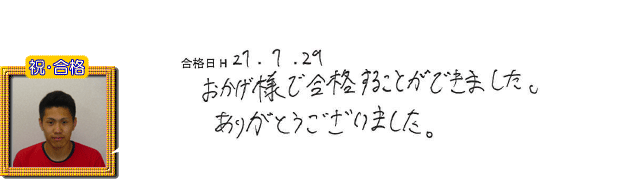 祝・合格
合格日 H 27.7.29
おかげ様で合格することができました。
ありがとうございました。